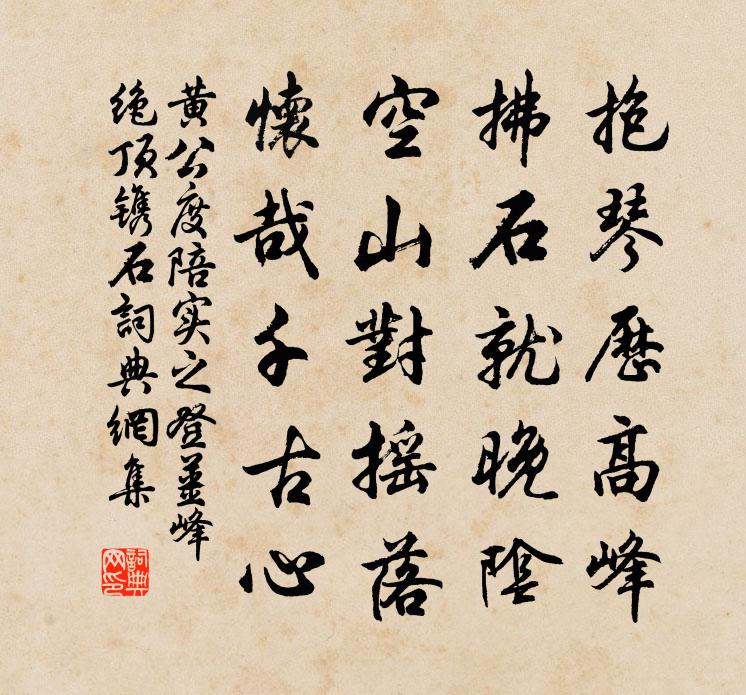 抱琴歷高峰
拂石就晚陰
空山對搖落
懷哉千古心
黃公度陪实之登薑峰
绝頂鐫石詞典網集
詞典
网印